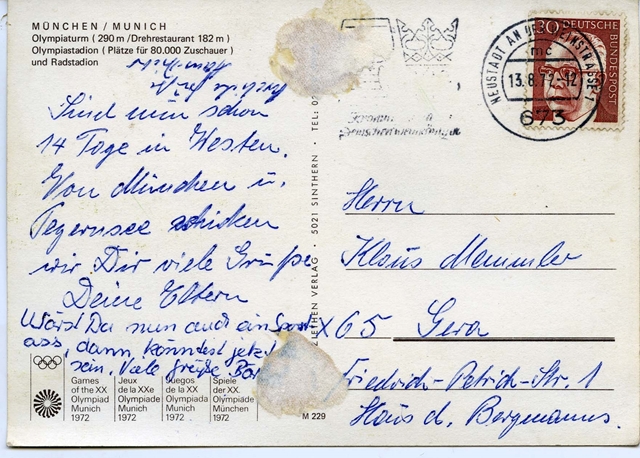 MÜNCHEN / MUNICH
Olympiaturm ( 290 m /Drehrestaurant 182 m )
Olympiastadion ( Plätze für 80.000 Zuschauer )
und Radstadion
Sind nun schon
14 Tage in Westen.
Von München u.
Tegernsee schicken
wir Dir viele Grüße
Deine Eltern
Wärst Du nun auch ein Sport
ass, dann könntest jetzt
sein. Viele grüße
Games
of the XX
Olympiad
Munich
1972
Jeux
de la XXe
Olympiade
Munich
1972
Juegos
de la XX
Olympiada
Munich
1972
Spiele
der XX.
Olympiade
München
1972
M 229
LETHEN VERLAG · 5021 SINTHERN · TEL: 02
NEUSTADT AN DER WEINSTRASSE 1
mc
13.8.72-12
673
30 DEUTSCHE
BUNDESPOST
Herrn
Klaus Mammler
X 65 Gera
Friedrich-Petrich-Str. 1
Haus d. Bergmanns.